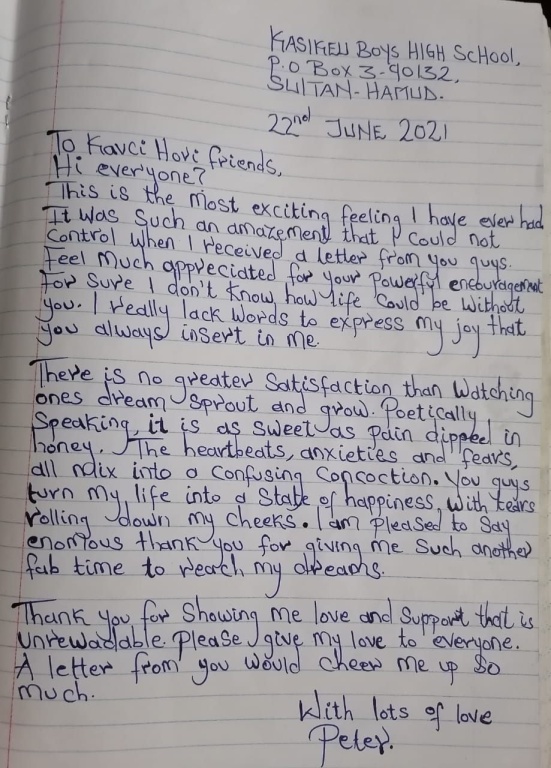 KASIKEU BOYS HIGH SCHOOL,
P.O BOX 3-90132,
SULTAN-HAMUD.
22nd JUNE 2021
To Kavci Hovi friends,
Hi everyone?
This is the most exciting feeling I have ever had
It was such an amazement that I could not
control when I received a letter from you guys.
Feel much appreciated for your powerful encouragement
For sure I don't know how life could be without
you. I really lack words to express my joy that
you always insert in me.
There is no greater satisfaction than watching
ones dream sprout and grow. Poetically
speaking, it is as sweet as pain dipped in
honey. The heartbeats, anxieties and fears,
all mix into a confusing concoction. You guys
turn my life into a state of happiness, with tears
rolling down my cheeks. I am pleased to say
enormous thank you for giving me such another
fab time to reach my dreams.
Thank you for showing me love and support that is
unrewadable. Please give my love to everyone.
A letter from you would cheer me up so
much.
With lots of love
Peter.